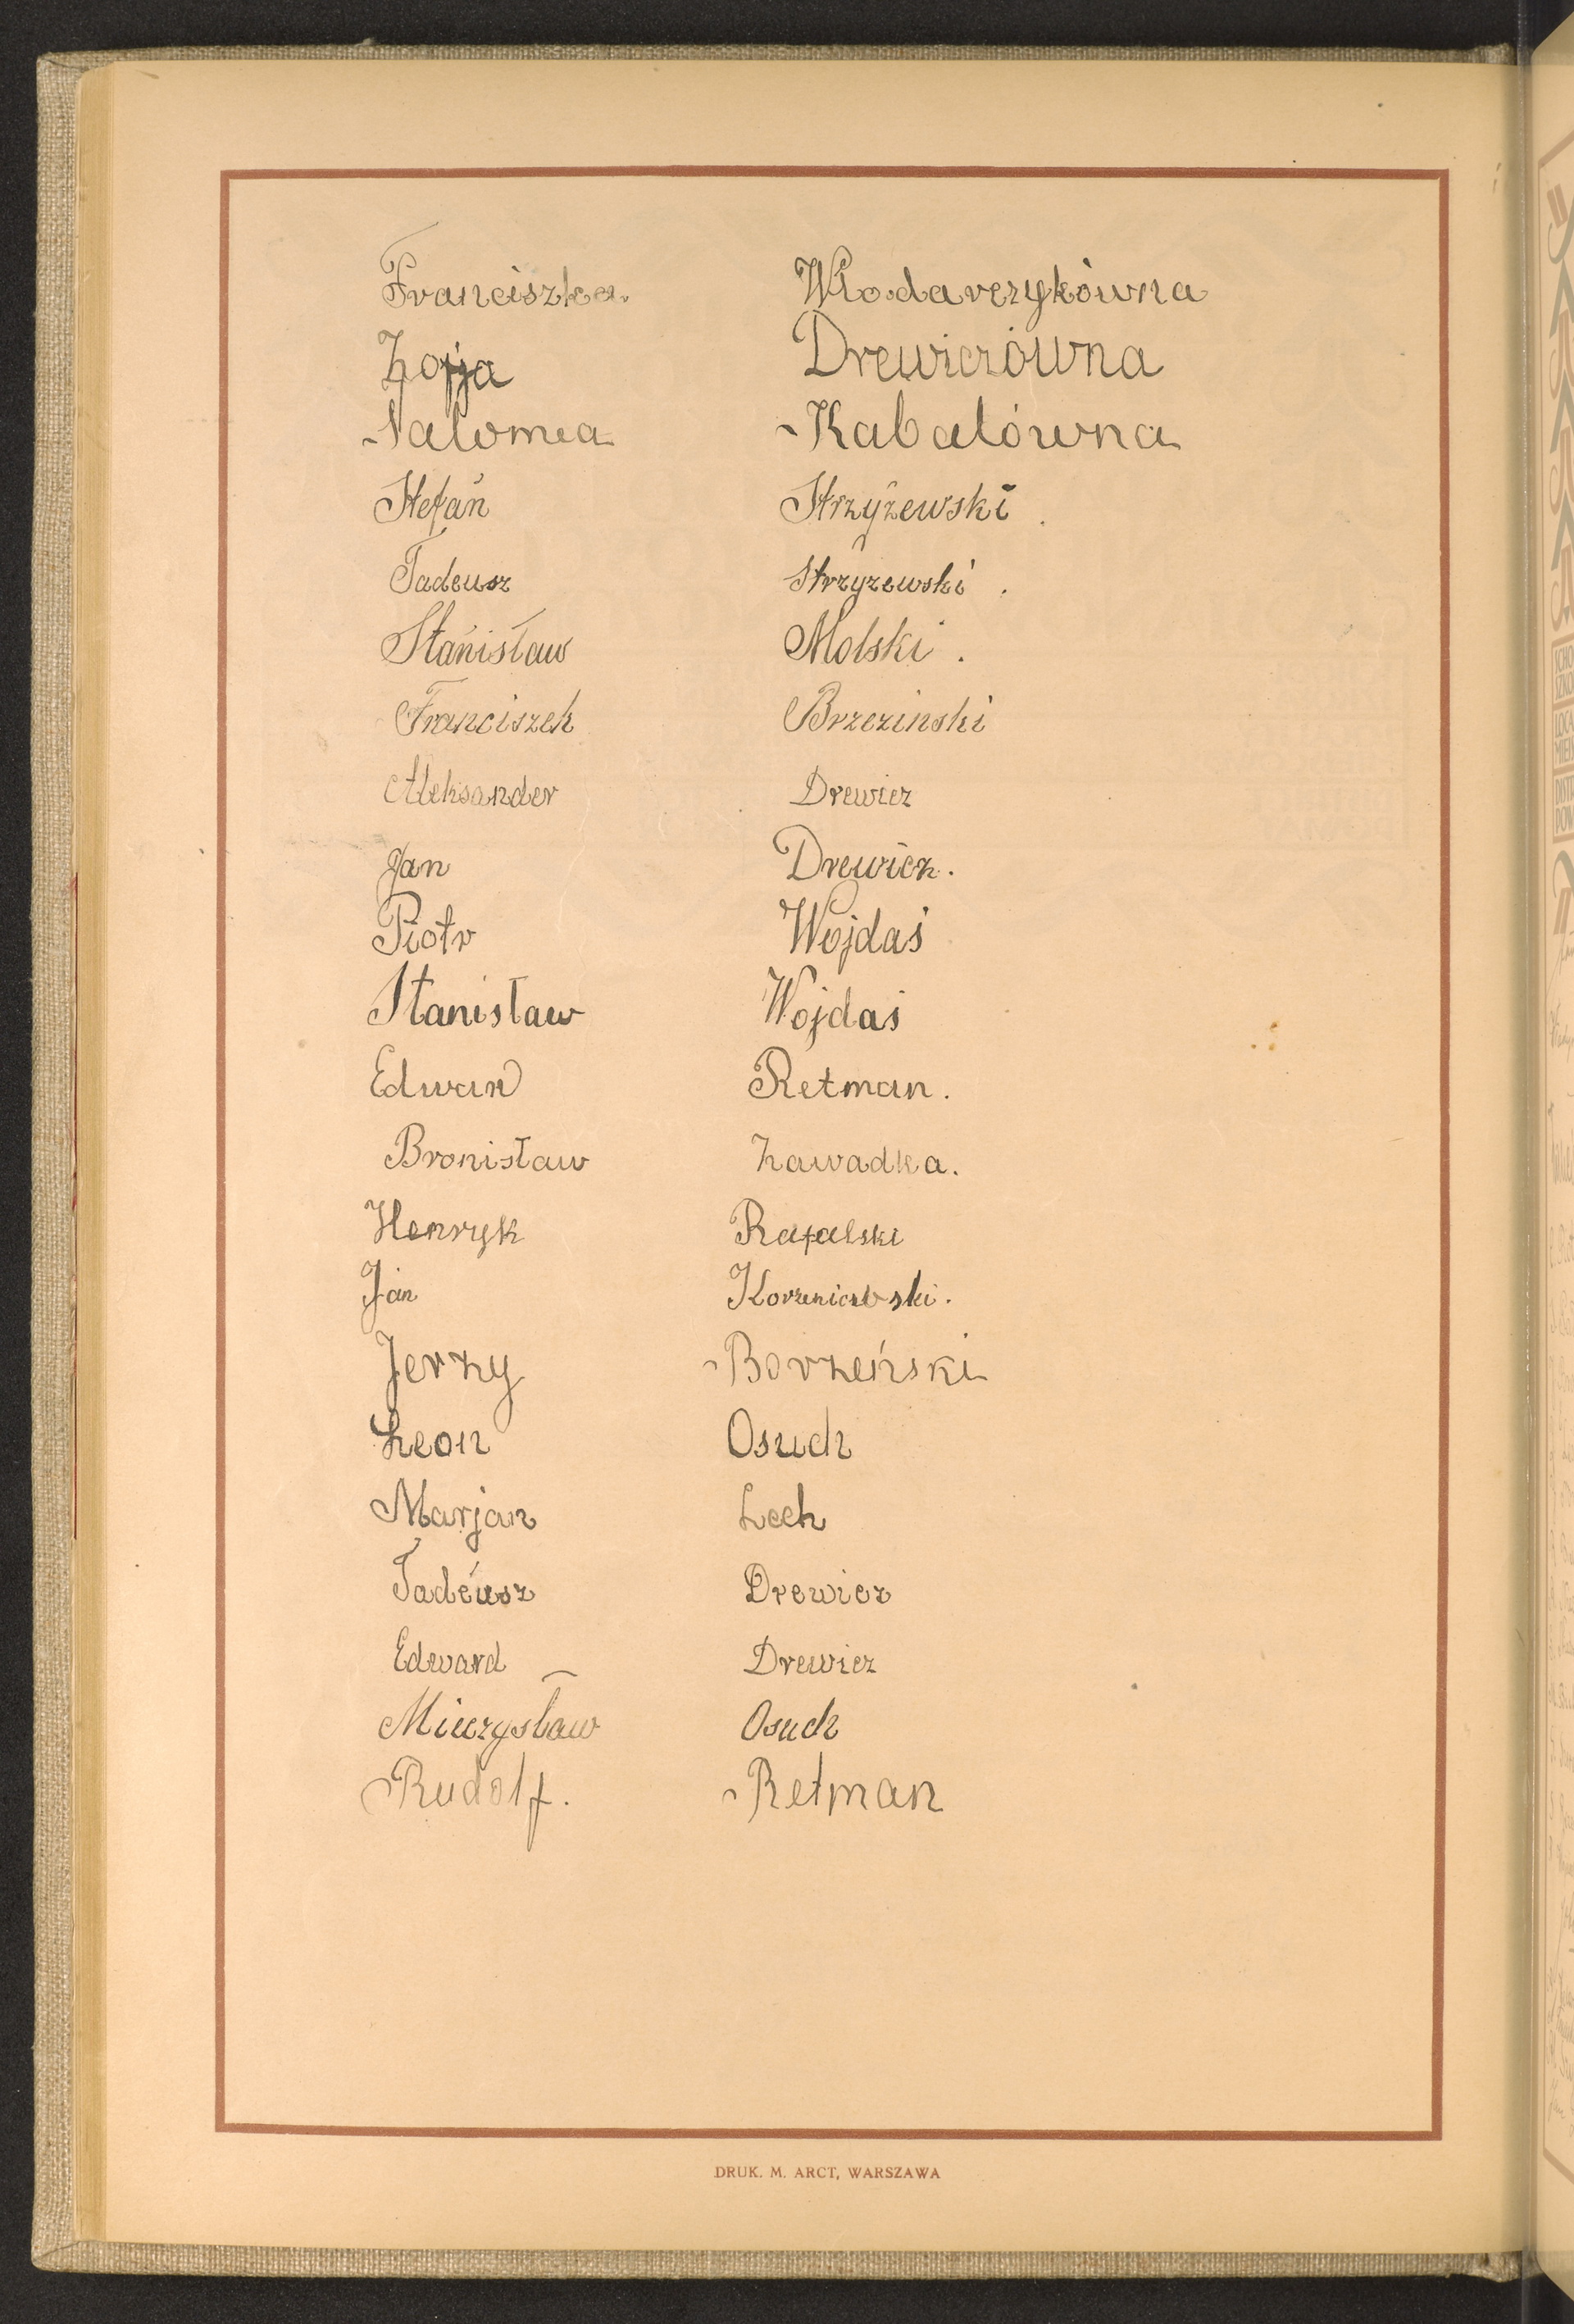 Franciszka Włodarczykówna
Zofja Drewiczówna
Salomea Kabałówna
Stefan Strzyżewski.
Tadeusz Strzyżewski.
Stanisław Molski.
Franciszek Brzezinski
Aleksander Drewicz
Jan Drewicz.
Piotr Wojdaś
Stanisław Wojdaś
Edwar Retman.
Bronisław Zawadka.
Henryk Rafalski
Jan Korzeniewski.
Jerzy Borzeński
Leon Osuch
Marjan Lech
Tadeusz Drewicz
Edward Drewicz
Mieczysław Osuch
Rudolf. Retman
DRUK. M. ARCT, WARSZAWA